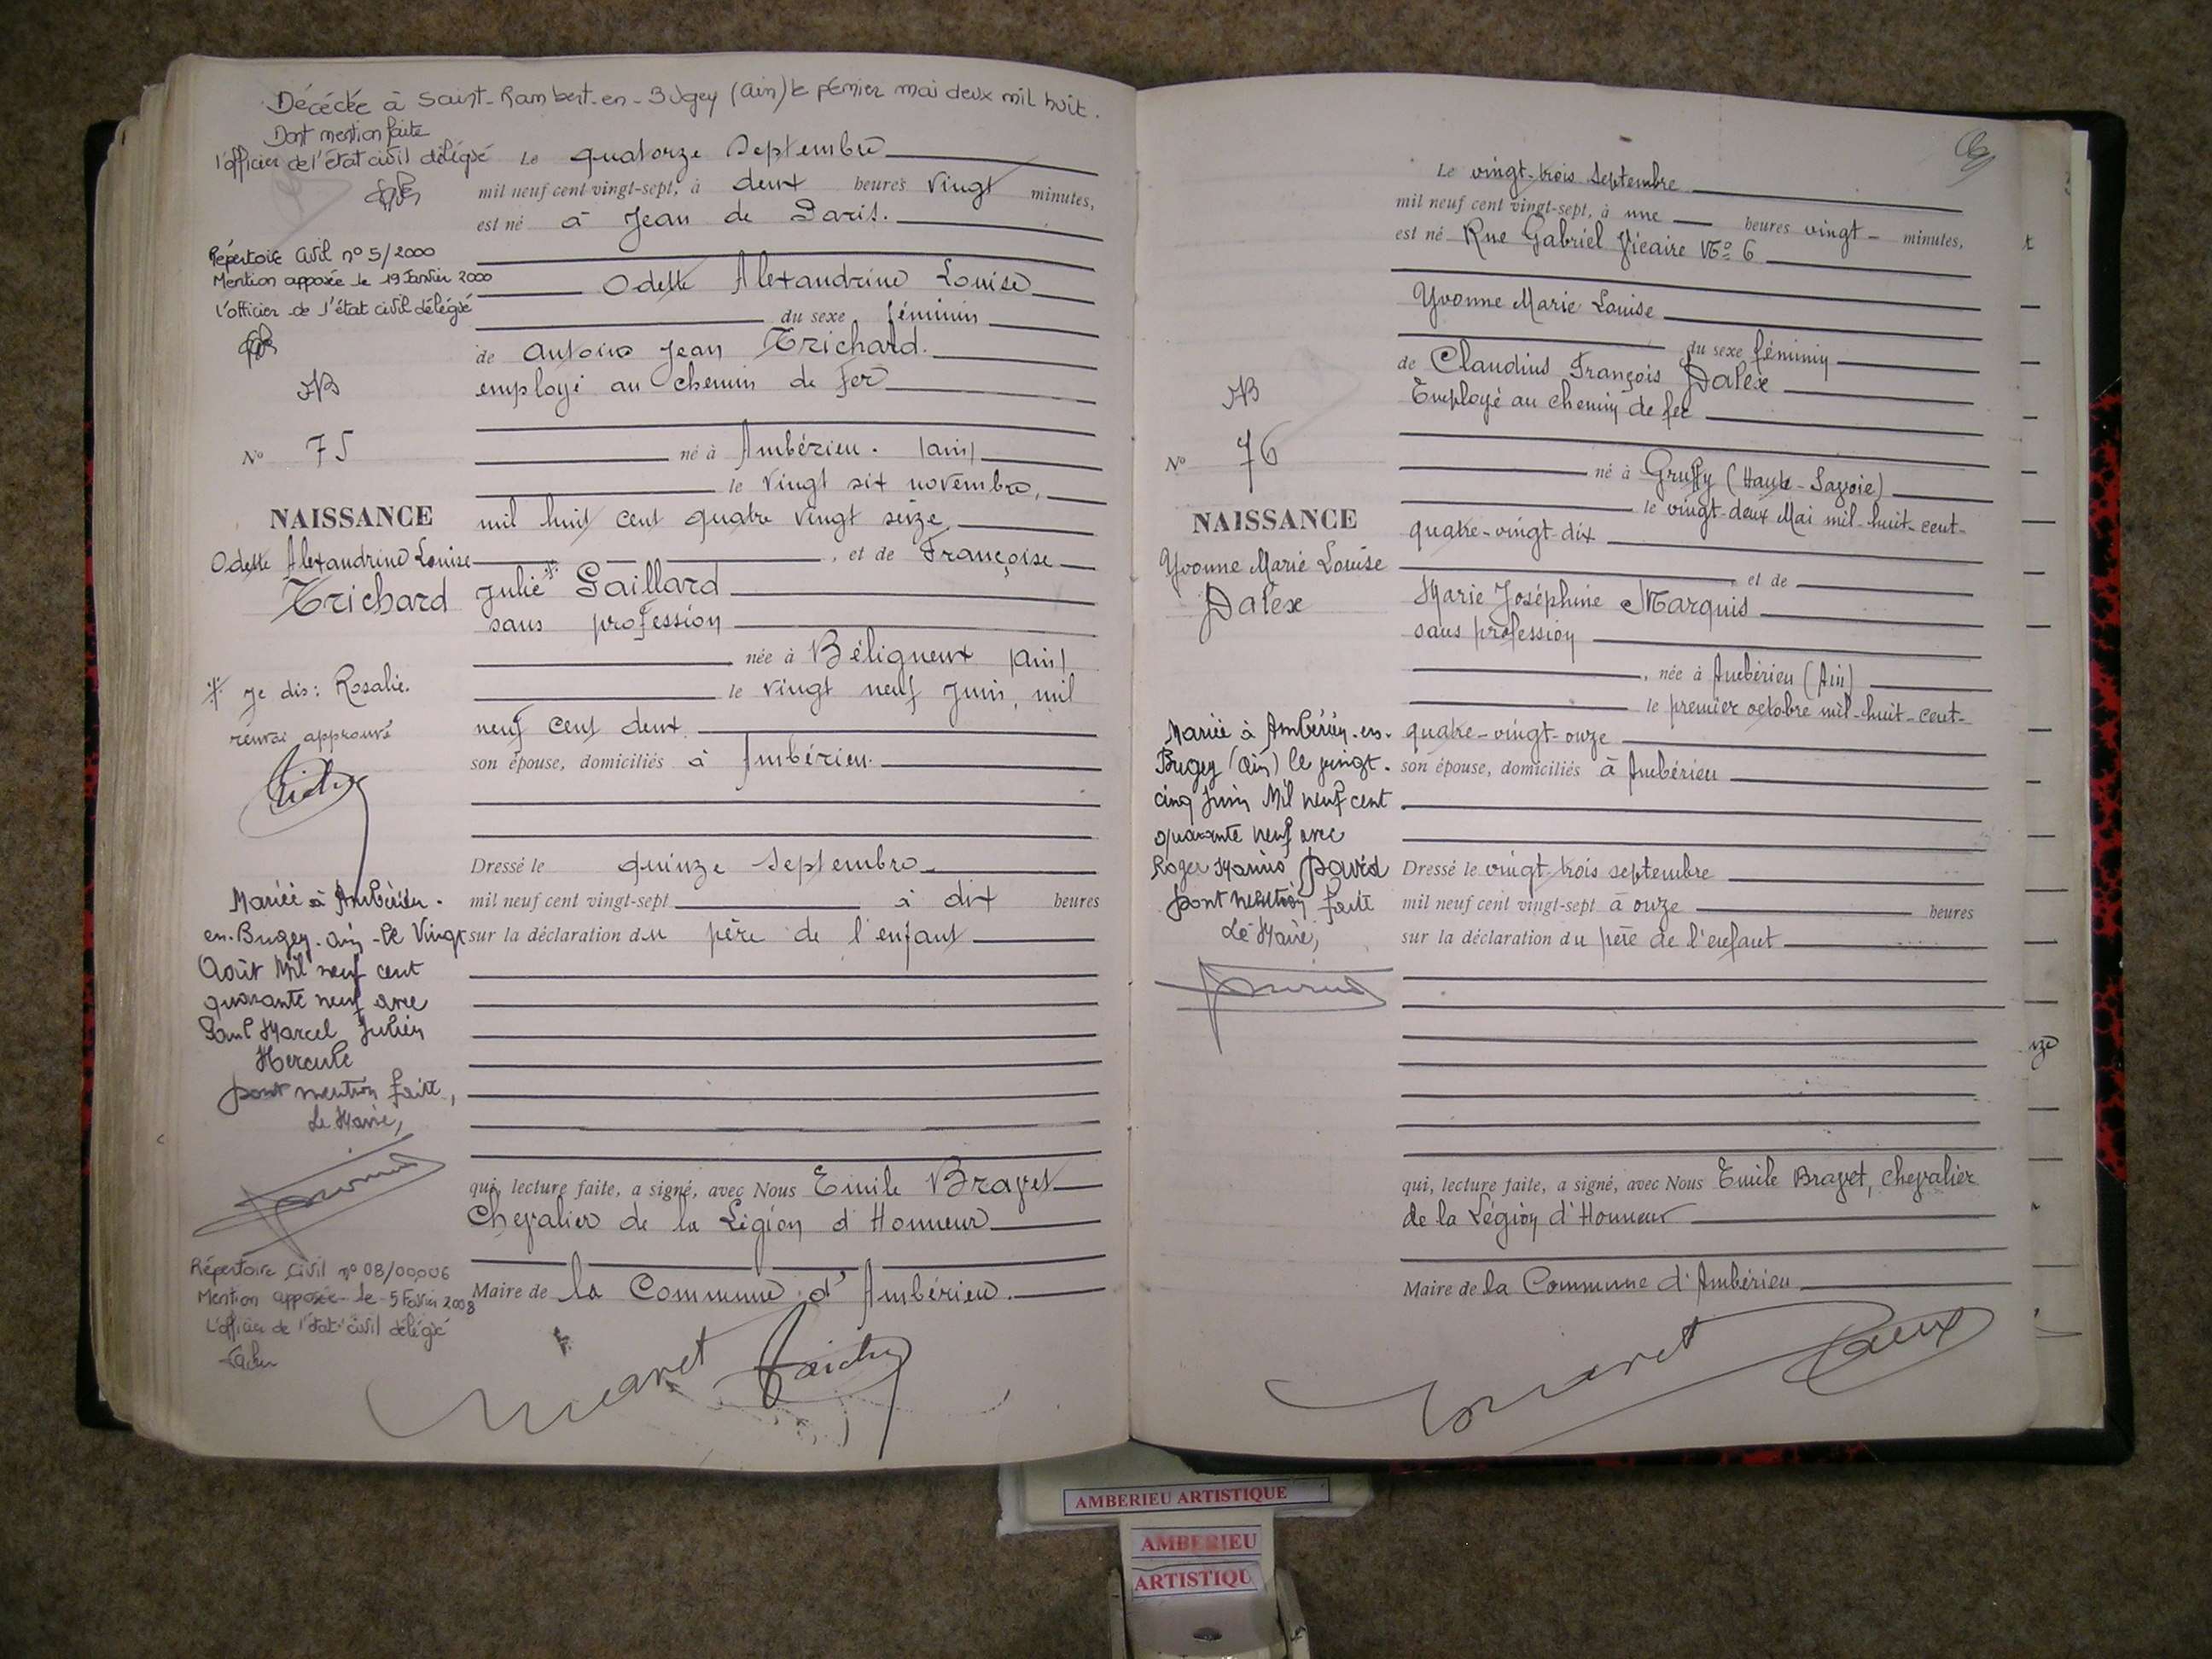 Décédée à Saint-Rambert-en-Bugey (Ain) le pemier mai deux mil huit.
Dont mention faite
l'officier de l'état civil délégué
Répertoire Civil n° 5/2000
Mention apposée le 19 Janvier 2000
l'officier de l'état civil délégué
N° 75
NAISSANCE
Odette Alexandrine Louise
Trichard
Je dis: Rosalie.
renvoi approuvé
Mariée à Ambérieu-
en-Bugey-Ain-le Vingt
Août Mil neuf cent
quarante neuf avec
Paul Marcel Julien
Hercule
Dont mention faite,
Le Maire,
Répertoire Civil n° 08/00006
Mention apposée le 5 Février 2008
L'officier de l'état civil délégué
Le quatorze Septembre
mil neuf cent vingt-sept, à deux heures vingt minutes,
est né à Jean de Paris.
Odette Alexandrine Louise
du sexe féminin
de Antoine Jean Trichard.
employé au chemin de Fer
né à Ambérieu. (ain)
le vingt six novembre,
mil huit cent quatre vingt seize
, et de Françoise
Julie Gaillard
sans profession
née à Béligneux (ain)
le vingt neuf Juin, mil
neuf cent deux
son épouse, domiciliés à Ambérieu.
Dressé le quinze septembre
mil neuf cent vingt-sept à dix heures
sur la déclaration du père de l'enfant
qui, lecture faite, a signé, avec Nous Emile Bravet
Chevalier de la Légion d'Honneur
Maire de la Commune d'Ambérieu.
N° 76
NAISSANCE
Yvonne Marie Louise
Dalex
Mariée à Ambérieu-en-
Bugey (Ain) le vingt-
cinq Juin Mil neuf cent
quarante neuf avec
Roger Marius David
Dont mention faite
Le Maire,
Le vingt-trois Septembre
mil neuf cent vingt-sept, à une heures vingt- minutes,
est né Rue Gabriel Vicaire No 6
Yvonne Marie Louise
du sexe féminin
de Claudius François Dalex
Employé au chemin de fer
né à Gruffy (Haute-Savoie)
le vingt-deux Mai mil-huit-cent-
quatre-vingt-dix
et de
Marie Joséphine Marquis
sans profession
, née à Ambérieu (Ain)
le premier octobre mil-huit-cent-
quatre-vingt-onze
son épouse, domiciliés à Ambérieu
Dressé le vingt-trois septembre
mil neuf cent vingt-sept à onze heures
sur la déclaration du père de l'enfant
qui, lecture faite, a signé, avec Nous Emile Bravet, Chevalier
de la Légion d'Honneur
Maire de la Commune d'Ambérieu
AMBERIEU ARTISTIQUE
AMBERIEU
ARTISTIQU